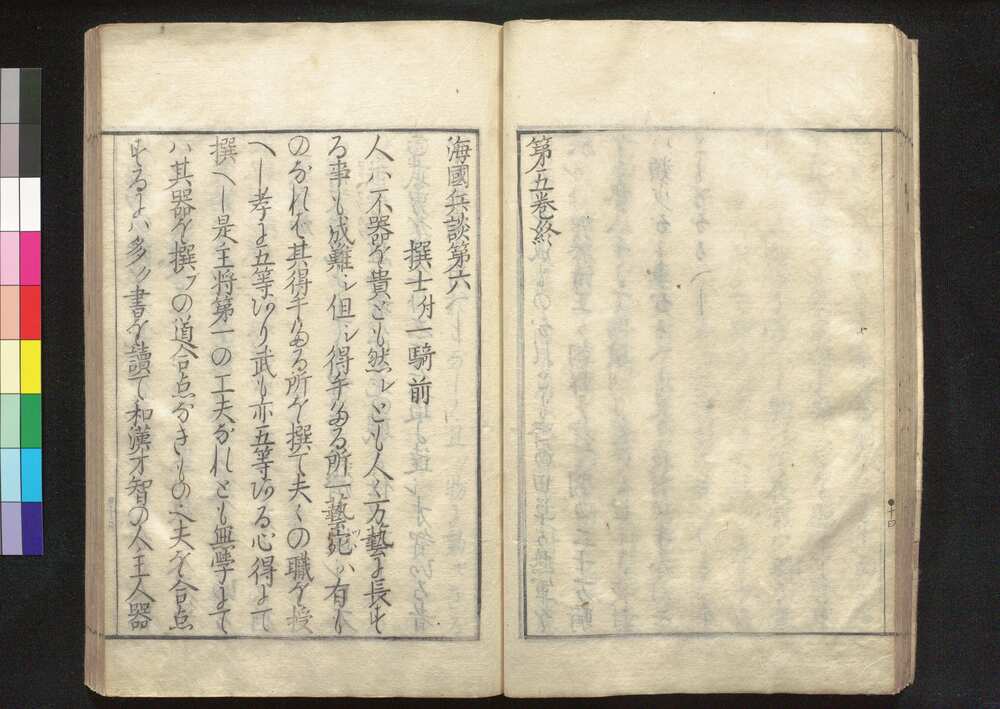 第五巻終
十四
海國兵談第六
撰士付一騎前
人ハ不器を貴とも然レとも人々万藝に長す
る事も成難シ但シ得手なる所一藝宛ハ有り
のなれは其得手なる所を撰て夫々の職を授
へし孝に五等あり武も亦五等ある心得にて
撰へし是主将第一の工夫なれとも無學にて
ハ其器を撰フの道合点なきもの也夫を合点
するにハ多ク書を讀て和漢才智の人主人器